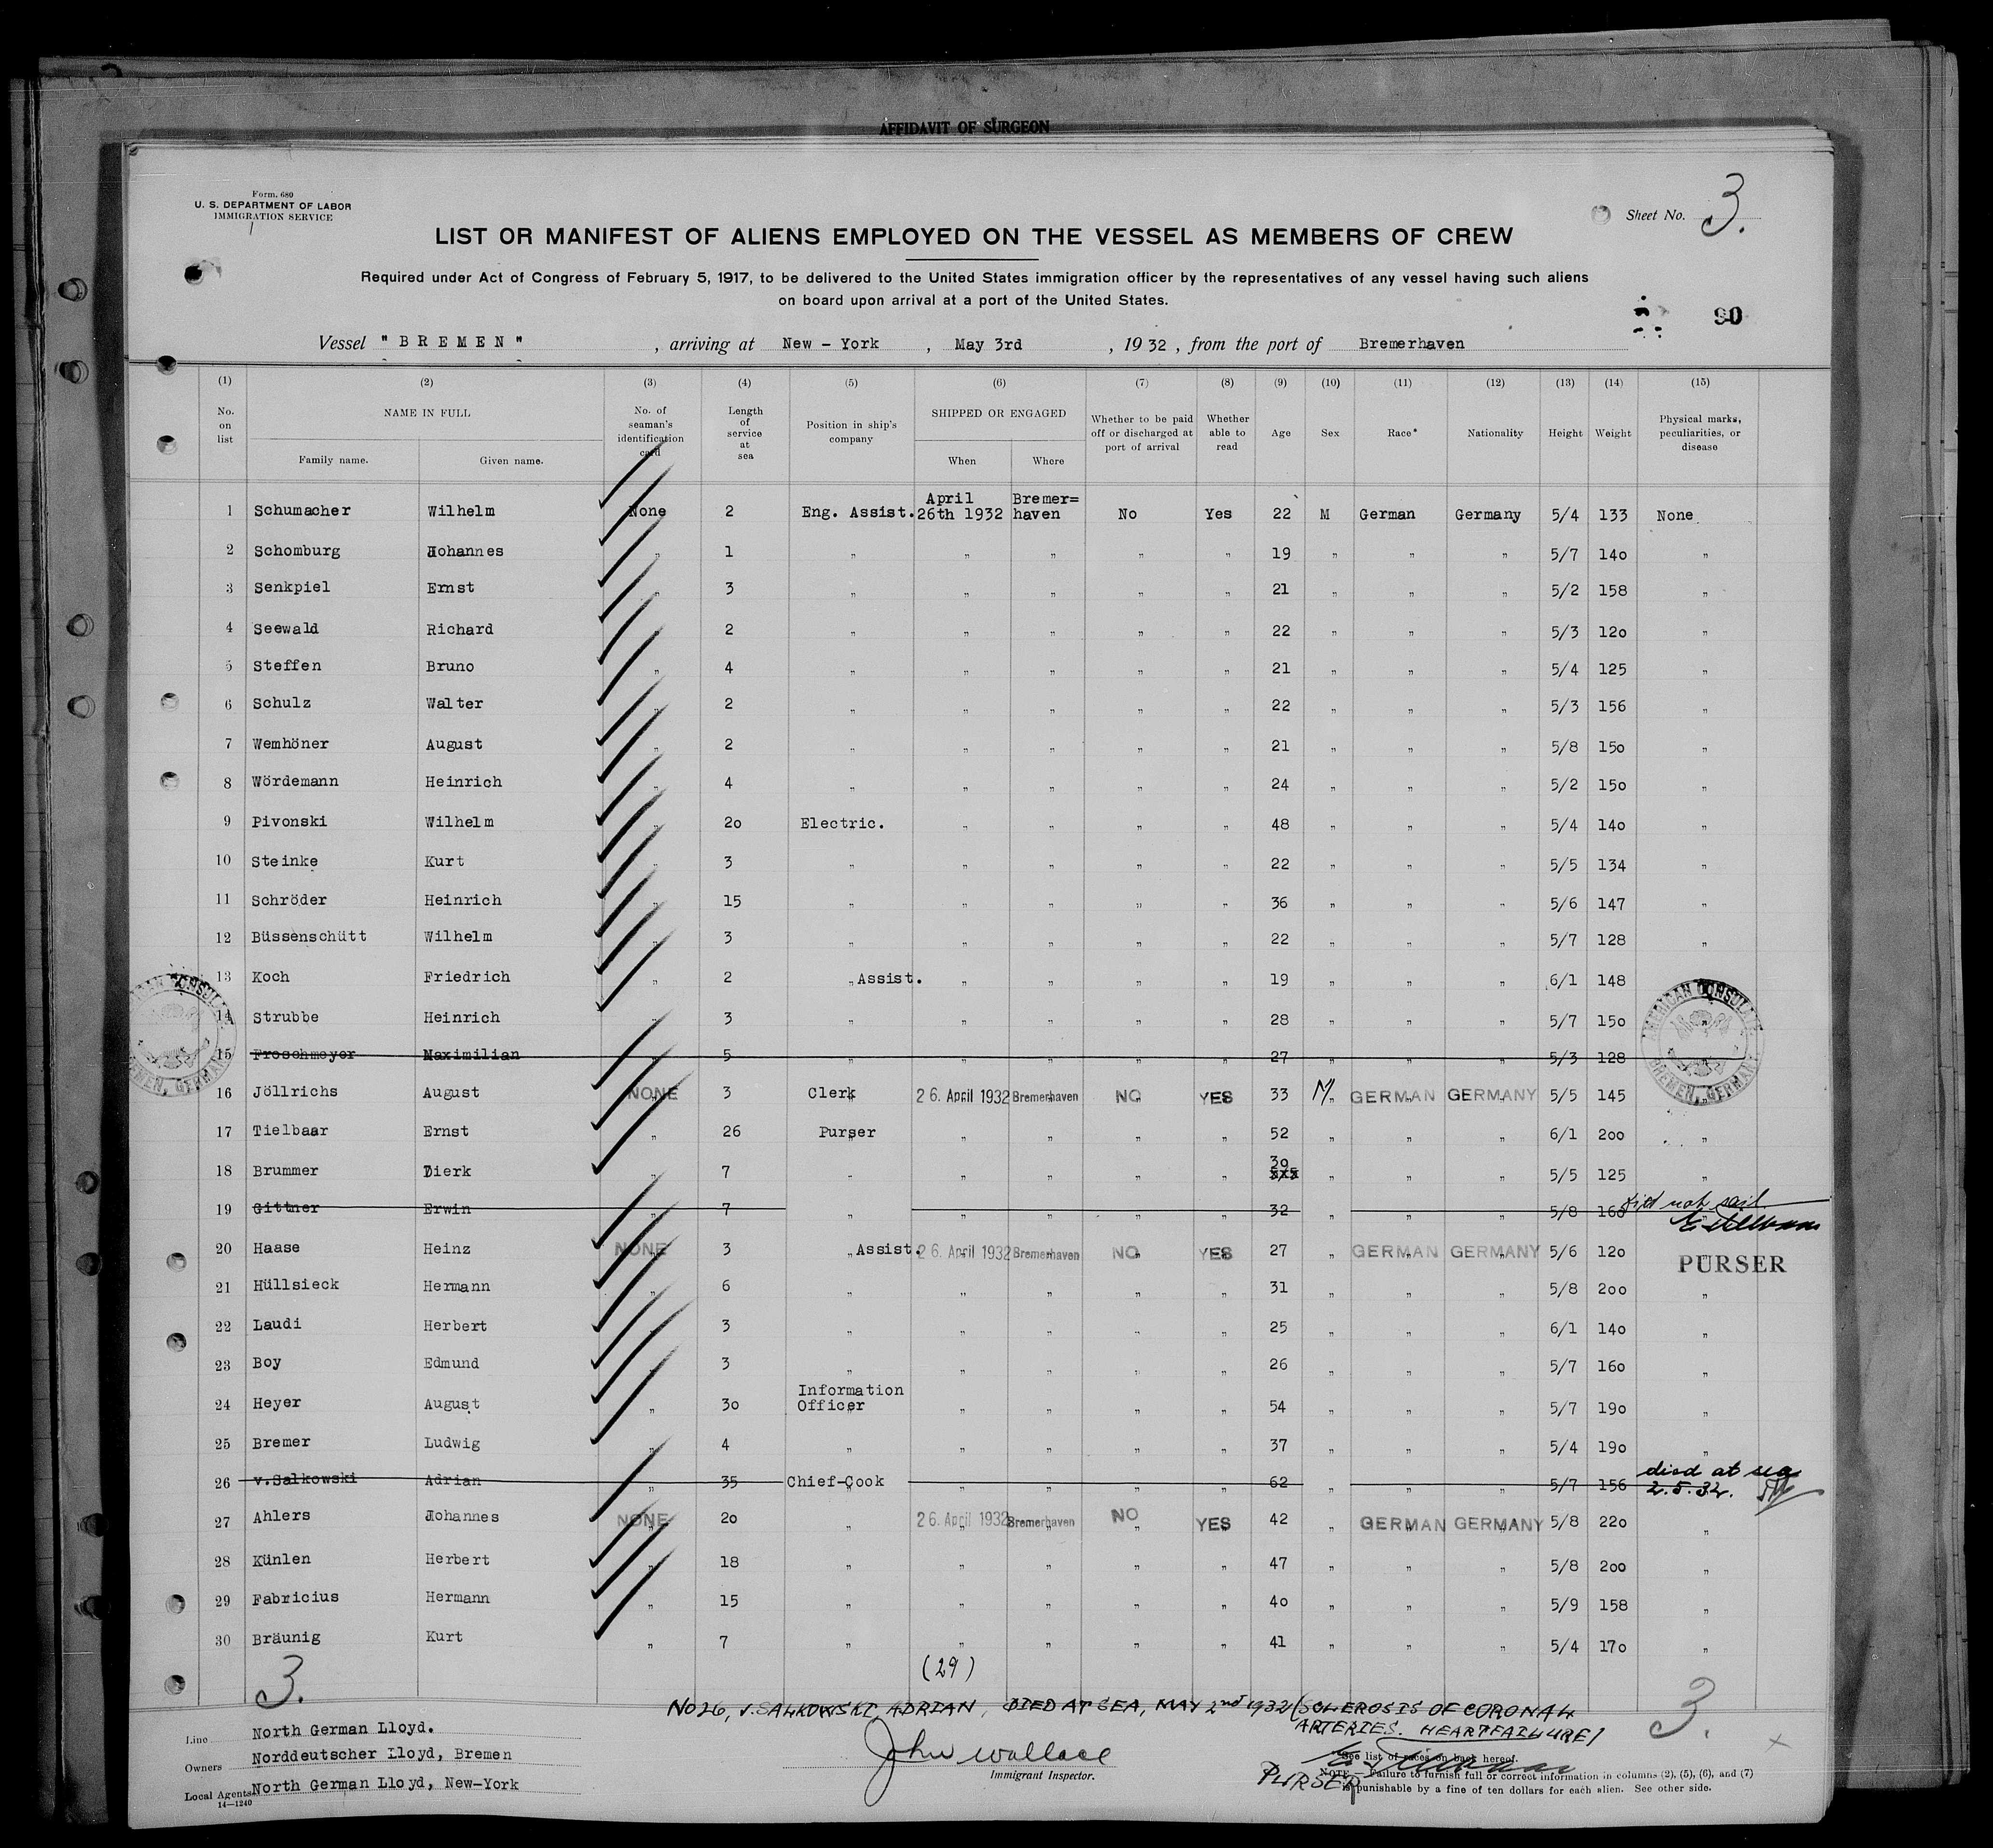 AFFIDAVIT OF SURGEON
Form 680
U. S. DEPARTMENT OF LABOR
IMMIGRATION SERVICE
Sheet No. 3.
LIST OR MANIFEST OF ALIENS EMPLOYED ON THE VESSEL AS MEMBERS OF CREW
Required under Act of Congress of February 5, 1917, to be delivered to the United States immigration officer by the representatives of any vessel having such aliens
on board upon arrival at a port of the United States.
90
Vessel "BREMEN", arriving at New-York, May 3rd, 1932, from the port of Bremerhaven
(1) (2) (3) (4) (5) (6) (7) (8) (9) (10) (11) (12) (13) (14) (15)
No. on list NAME IN FULL Family name. Given name. No. of seaman's identification card Length of service at sea Position in ship's company SHIPPED OR ENGAGED When Where Whether to be paid off or discharged at port of arrival Whether able to read Age Sex Race* Nationality Height Weight Physical marks, peculiarities, or disease
1 Schumacher Wilhelm None 2 Eng. Assist. April 26th 1932 Bremer=haven No Yes 22 M German Germany 5/4 133 None
2 Schomburg Johannes " 1 " " " " " 19 " " " 5/7 140 "
3 Senkpiel Ernst " 3 " " " " " 21 " " " 5/2 158 "
4 Seewald Richard " 2 " " " " " 22 " " " 5/3 120 "
5 Steffen Bruno " 4 " " " " " 21 " " " 5/4 125 "
6 Schulz Walter " 2 " " " " " 22 " " " 5/3 156 "
7 Wemhöner August " 2 " " " " " 21 " " " 5/8 150 "
8 Wördemann Heinrich " 4 " " " " " 24 " " " 5/2 150 "
9 Pivonski Wilhelm " 20 Electric. " " " " 48 " " " 5/4 140 "
10 Steinke Kurt " 3 " " " " " 22 " " " 5/5 134 "
11 Schröder Heinrich " 15 " " " " " 36 " " " 5/6 147 "
12 Büssenschütt Wilhelm " 3 " " " " " 22 " " " 5/7 128 "
13 Koch Friedrich " 2 " Assist. " " " " 19 " " " 6/1 148
14 Strubbe Heinrich " 3 " " " " " 28 " " " 5/7 150
15 Froschmeyer Maximilian " 5 " " " " " 27 " " " 5/3 128
AMERICAN CONSULATE BREMEN, GERMANY
16 Jöllrichs August NONE 3 Clerk 26. April 1932 Bremerhaven NO YES 33 M GERMAN GERMANY 5/5 145
17 Tielbaar Ernst " 26 Purser " " " " 52 " " " 6/1 200 "
18 Brummer Dierk " 7 " " " " " 30 " " " 5/5 125 "
19 Gittner Erwin " 7 " " " " " 32 " " " 5/8 160 did not sail
20 Haase Heinz NONE 3 " Assist. 26. April 1932 Bremerhaven NO YES 27 " GERMAN GERMANY 5/6 120 PURSER
21 Hüllsieck Hermann " 6 " " " " " 31 " " " 5/8 200 "
22 Laudi Herbert " 3 " " " " " 25 " " " 6/1 140 "
23 Boy Edmund " 3 " " " " " 26 " " " 5/7 160 "
24 Heyer August " 30 Information Officer " " " " 54 " " " 5/7 190 "
25 Bremer Ludwig " 4 " " " " " 37 " " " 5/4 190 "
26 v.Salkowski Adrian " 35 Chief-Cook " " " " 62 " " " 5/7 156 died at sea 2.5.32.
27 Ahlers Johannes NONE 20 " 26. April 1932 Bremerhaven NO YES 42 " GERMAN GERMANY 5/8 220 "
28 Künlen Herbert " 18 " " " " " 47 " " " 5/8 200 "
29 Fabricius Hermann " 15 " " " " " 40 " " " 5/9 158 "
30 Bräunig Kurt " 7 " " " " " 41 " " " 5/4 170 "
3. (29) 3.
No 26, v. SALKOWSKI, ADRIAN, DIED AT SEA, MAY 2nd 1932 (SCLEROSIS OF CORONAR
ARTERIES. HEARTFAILURE)
Line North German Lloyd.
Owners Norddeutscher Lloyd, Bremen
Local Agents North German Lloyd, New-York
14—1240
John Wallace
Immigrant Inspector.
PURSER
*See list of races on back hereof.
NOTE.—Failure to furnish full or correct information in columns (2), (5), (6), and (7)
is punishable by a fine of ten dollars for each alien. See other side.